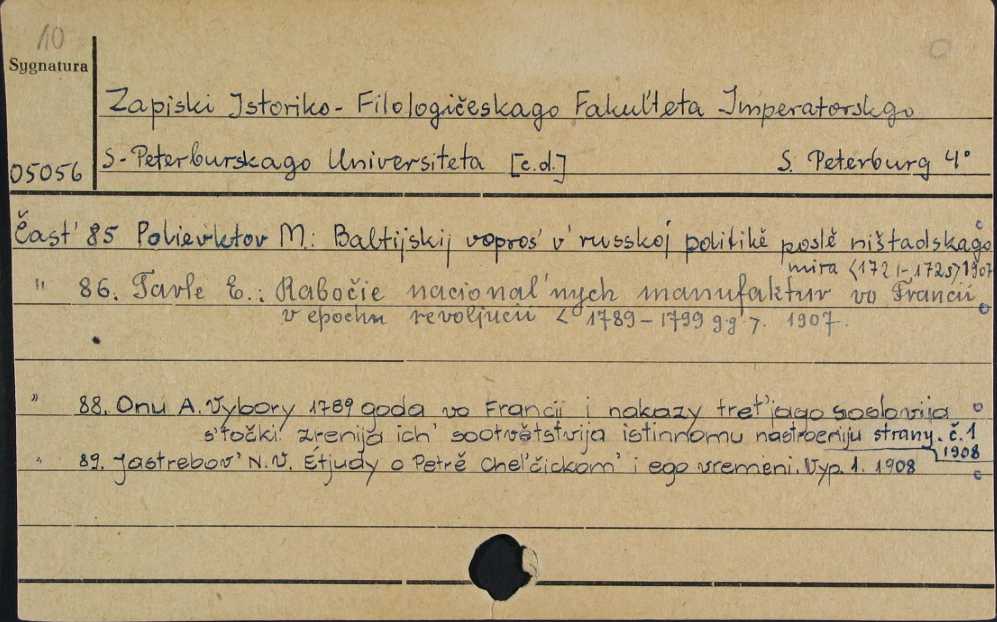 10
Sygnatura
Zapiski Istoriko-Filologičeskago Fakul'teta Imperatorskgo
05056 S-Peterburskago Universiteta [c.d.] S. Peterburg 4°
Čast' 85 Polievktov M.: Baltijskij vopros' v' russkoj politikě poslě ništadskago
mira <1721-1725> 1907
" 86. Tarle E.: Rabočie nacional'nych manufaktur vo Francii
v epochu revoljucii <1789-1799 g.g.>. 1907.
" 88. Onu A. Vybory 1789 goda vo Francii i nakazy tret'jago soslovija
s'točki zrenija ich' sootvětstvija istinnomu nastroeniju strany. č.1
1908
" 89. Jastrebov' N.V. Étjudy o Petrě Chel'čickom' i ego vremeni. Vyp. 1. 1908